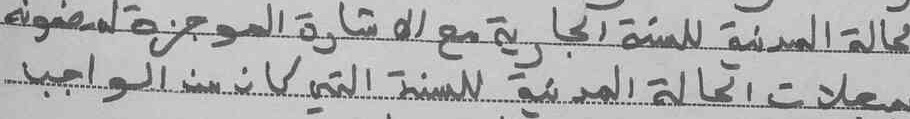 لحالة المدنية للسنة الجارية مع الاشارة الموجزة لمضمونه
سجلات الحالة المدنية للسنة التي كان من الواجب